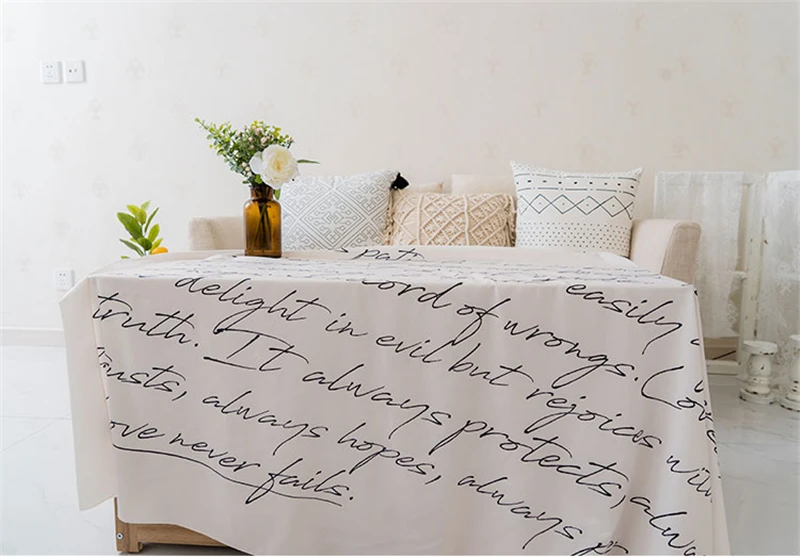 pat
easily a
cord of wrongs. Love
delight in evil but rejoices with
truth. It always protects, alwa
usts, always hopes, always p
ove never fails.